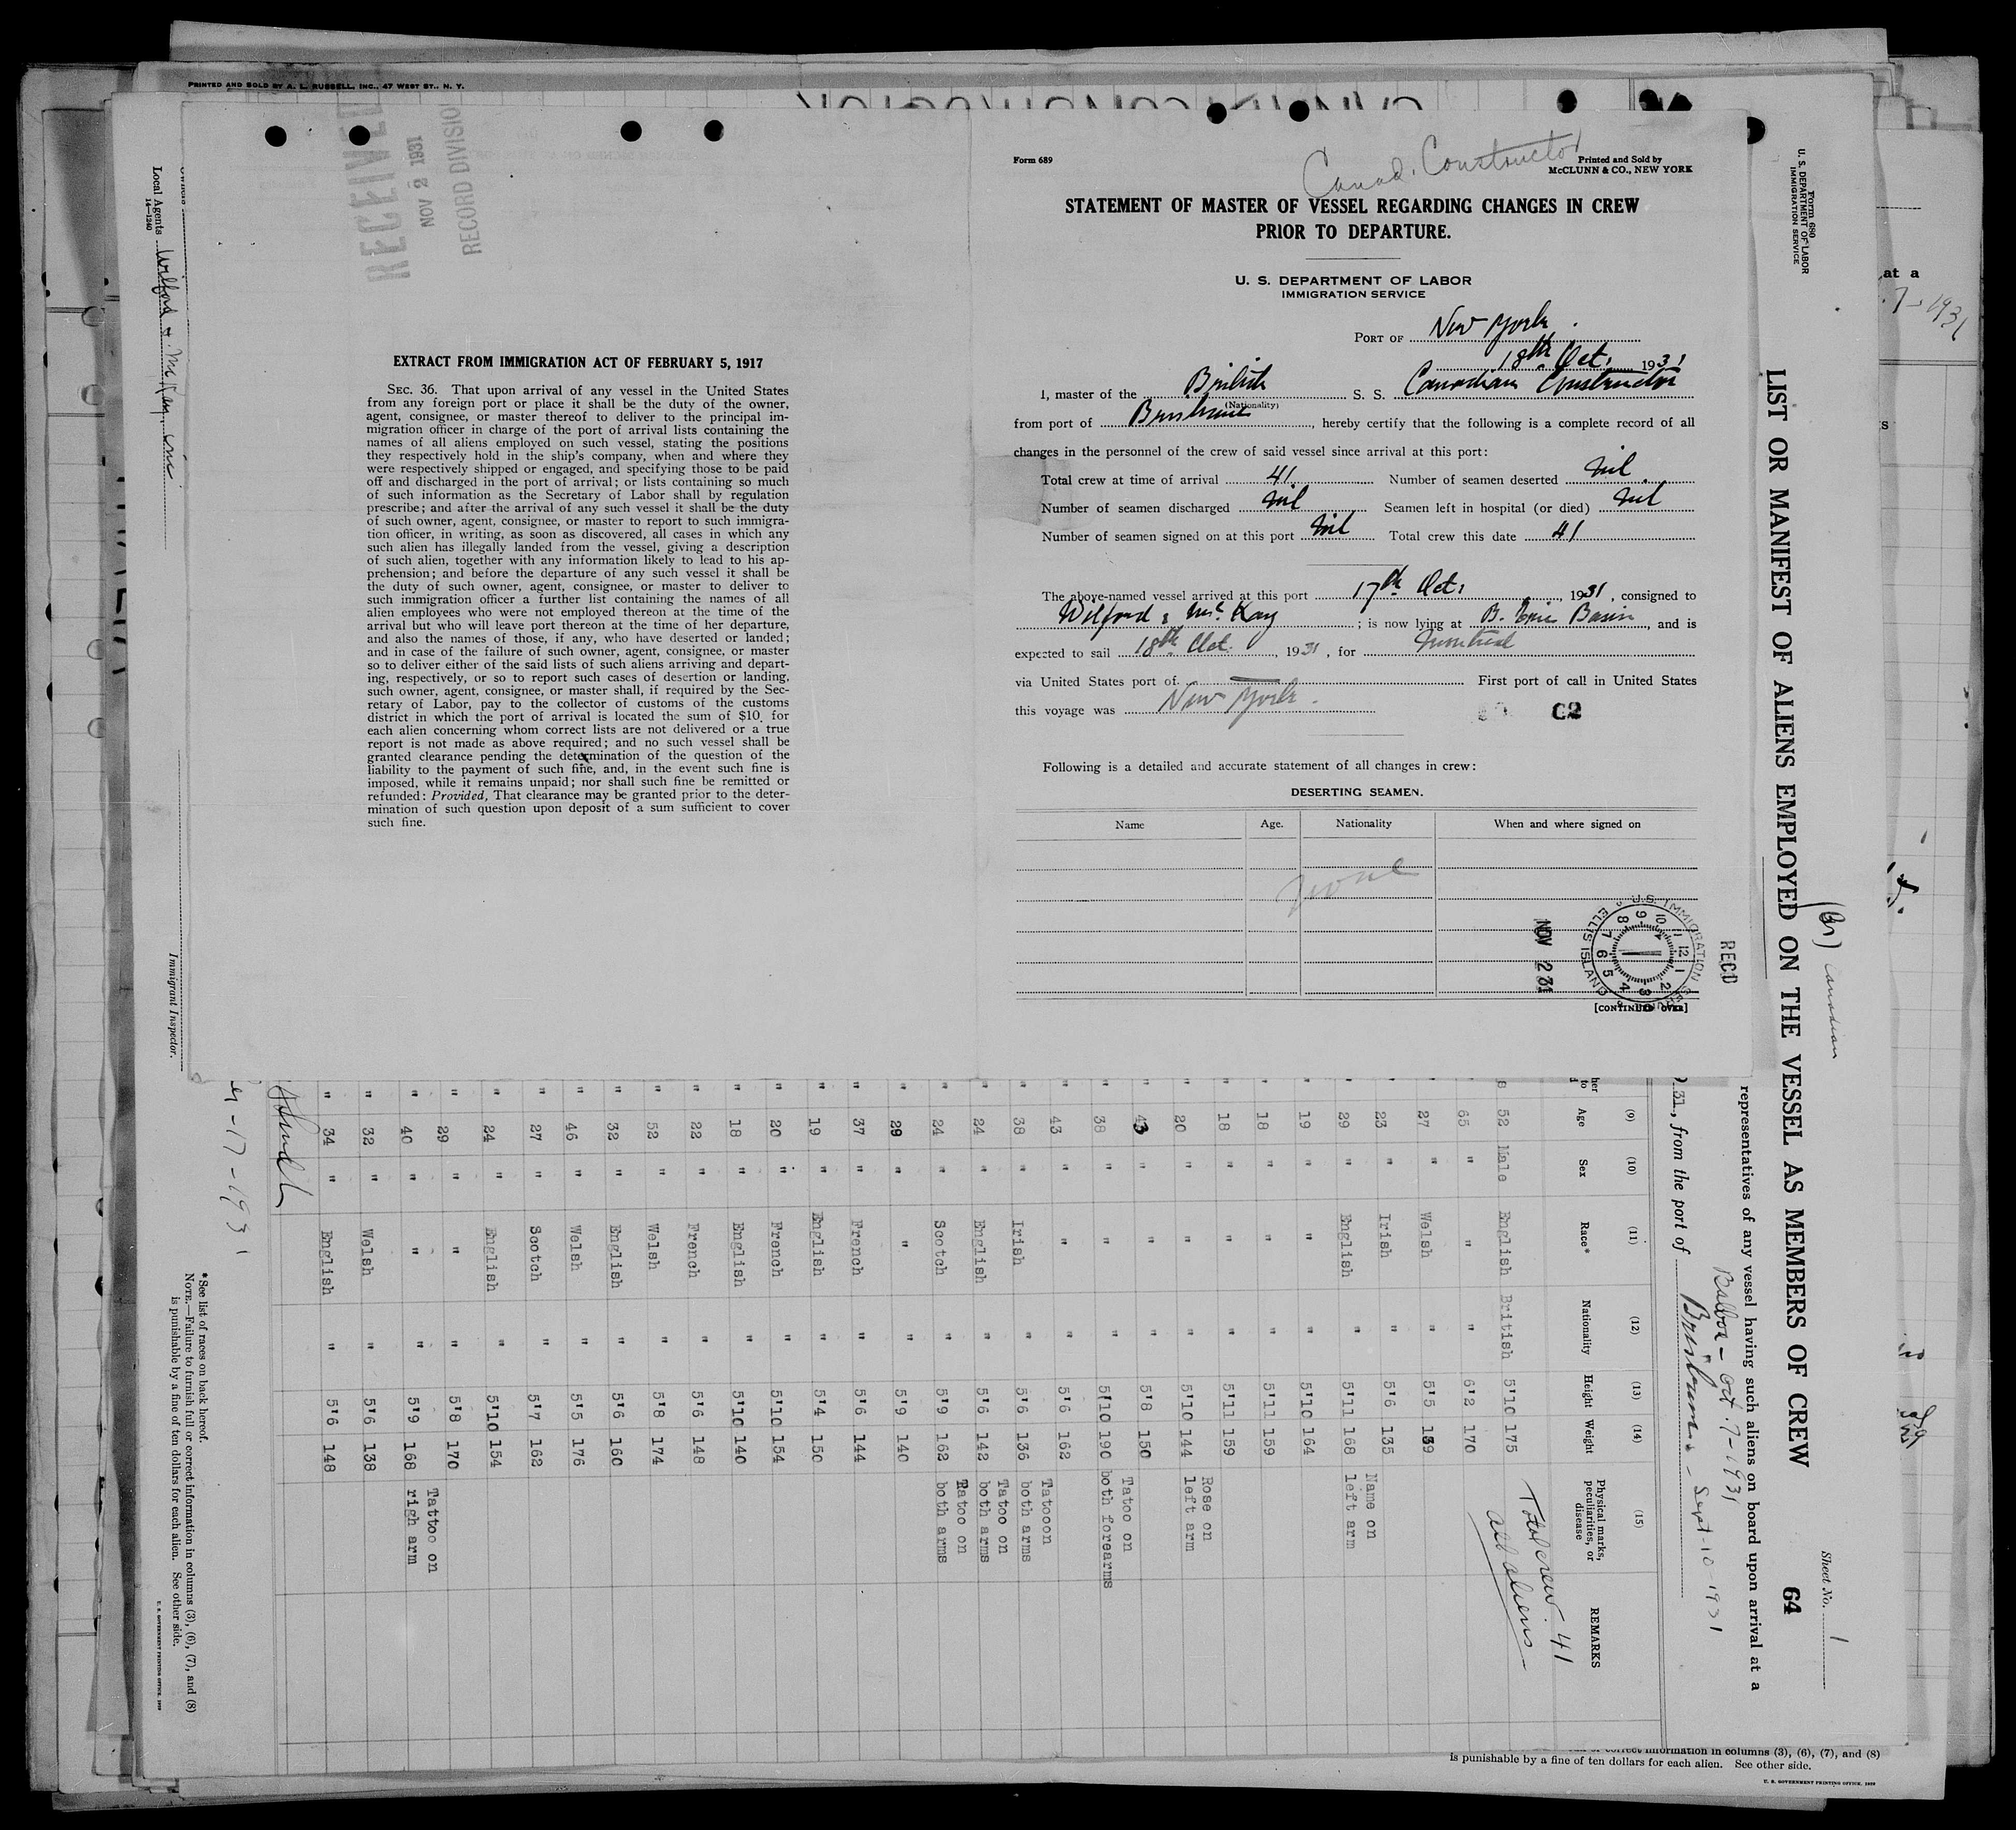 PRINTED AND SOLD BY A. L. RUSSELL, INC., 47 WEST ST., N. Y.
RECEIVED
NOV 2 1931
RECORD DIVISIO
EXTRACT FROM IMMIGRATION ACT OF FEBRUARY 5, 1917
SEC. 36. That upon arrival of any vessel in the United States
from any foreign port or place it shall be the duty of the owner,
agent, consignee, or master thereof to deliver to the principal im-
migration officer in charge of the port of arrival lists containing the
names of all aliens employed on such vessel, stating the positions
they respectively hold in the ship's company, when and where they
were respectively shipped or engaged, and specifying those to be paid
off and discharged in the port of arrival; or lists containing so much
of such information as the Secretary of Labor shall by regulation
prescribe; and after the arrival of any such vessel it shall be the duty
of such owner, agent, consignee, or master to report to such immigra-
tion officer, in writing, as soon as discovered, all cases in which any
such alien has illegally landed from the vessel, giving a description
of such alien, together with any information likely to lead to his ap-
prehension; and before the departure of any such vessel it shall be
the duty of such owner, agent, consignee, or master to deliver to
such immigration officer a further list containing the names of all
alien employees who were not employed thereon at the time of the
arrival but who will leave port thereon at the time of her departure,
and also the names of those, if any, who have deserted or landed;
and in case of the failure of such owner, agent, consignee, or master
so to deliver either of the said lists of such aliens arriving and depart-
ing, respectively, or so to report such cases of desertion or landing,
such owner, agent, consignee, or master shall, if required by the Sec-
retary of Labor, pay to the collector of customs of the customs
district in which the port of arrival is located the sum of $10. for
each alien concerning whom correct lists are not delivered or a true
report is not made as above required; and no such vessel shall be
granted clearance pending the determination of the question of the
liability to the payment of such fine, and, in the event such fine is
imposed, while it remains unpaid; nor shall such fine be remitted or
refunded: Provided, That clearance may be granted prior to the deter-
mination of such question upon deposit of a sum sufficient to cover
such fine.
Canad. Constructor
Form 689
Printed and Sold by
McCLUNN & CO., NEW YORK
STATEMENT OF MASTER OF VESSEL REGARDING CHANGES IN CREW
PRIOR TO DEPARTURE.
U. S. DEPARTMENT OF LABOR
IMMIGRATION SERVICE
PORT OF New York.
18th Oct. 1931
I, master of the British S. S. Canadian Constructor
(Nationality)
from port of Brisbane, hereby certify that the following is a complete record of all
changes in the personnel of the crew of said vessel since arrival at this port:
Total crew at time of arrival 41 Number of seamen deserted Nil
Number of seamen discharged Nil Seamen left in hospital (or died) Nil
Number of seamen signed on at this port Nil Total crew this date 41
The above-named vessel arrived at this port 17th Oct. 1931, consigned to
Wilford & McKay; is now lying at B. Erie Basin, and is
expected to sail 18th Oct. 1931, for Montreal
via United States port of. First port of call in United States
this voyage was New York. C2
Following is a detailed and accurate statement of all changes in crew:
DESERTING SEAMEN.
Name Age. Nationality When and where signed on
None
NOV 2 31
U.S. IMMIGRATION
ELLIS ISLAND
REC'D
[CONTINUED OVER]
Form 680
U. S. DEPARTMENT OF LABOR
IMMIGRATION SERVICE
Sheet No. 1
(Br) Canadian
LIST OR MANIFEST OF ALIENS EMPLOYED ON THE VESSEL AS MEMBERS OF CREW 64
representatives of any vessel having such aliens on board upon arrival at a
Balboa - Oct. 7-1931
31, from the port of Brisbane - Sept-10-1931
(9) (10) (11) (12) (13) (14) (15)
Age Sex Race* Nationality Height Weight Physical marks, peculiarities, or disease REMARKS
Total crew 41
All aliens
52 Male English British 5'10 175
65 " " " 6'2 170
27 " Welsh " 5'5 139
23 " Irish " 5'6 135
29 " English " 5'11 168 Name on left arm
19 " " " 5'10 164
18 " " " 5'11 159
18 " " " 5'11 159
20 " " " 5'10 144 Rose on left arm
43 " " " 5'8 150
38 " " " 5'10 190 Tatoo on both forearms
43 " " " 5'6 162
38 " Irish " 5'6 136 Tatooon both arms
24 " English " 5'6 142 Tatoo on both arms
24 " Scotch " 5'9 162 Tatoo on both arms
29 " " " 5'9 140
37 " French " 5'6 144
19 " English " 5'4 150
20 " French " 5'10 154
18 " English " 5'10 140
22 " French " 5'6 148
52 " Welsh " 5'8 174
32 " English " 5'6 160
46 " Welsh " 5'5 176
27 " Scotch " 5'7 162
24 " English " 5'10 154
29 " " " 5'8 170
40 " " " 5'9 168 Tattoo on righ arm
32 " Welsh " 5'6 138
34 " English " 5'6 148
17-1931
*See list of races on back hereof.
NOTE.—Failure to furnish full or correct information in columns (3), (6), (7), and (8)
is punishable by a fine of ten dollars for each alien. See other side.
U. S. GOVERNMENT PRINTING OFFICE, 1929
Immigrant Inspector.
Local Agents Wilford & McKay, Inc
14—1240
at a
7-1931
correct information in columns (3), (6), (7), and (8)
is punishable by a fine of ten dollars for each alien. See other side.
U. S. GOVERNMENT PRINTING OFFICE, 1929